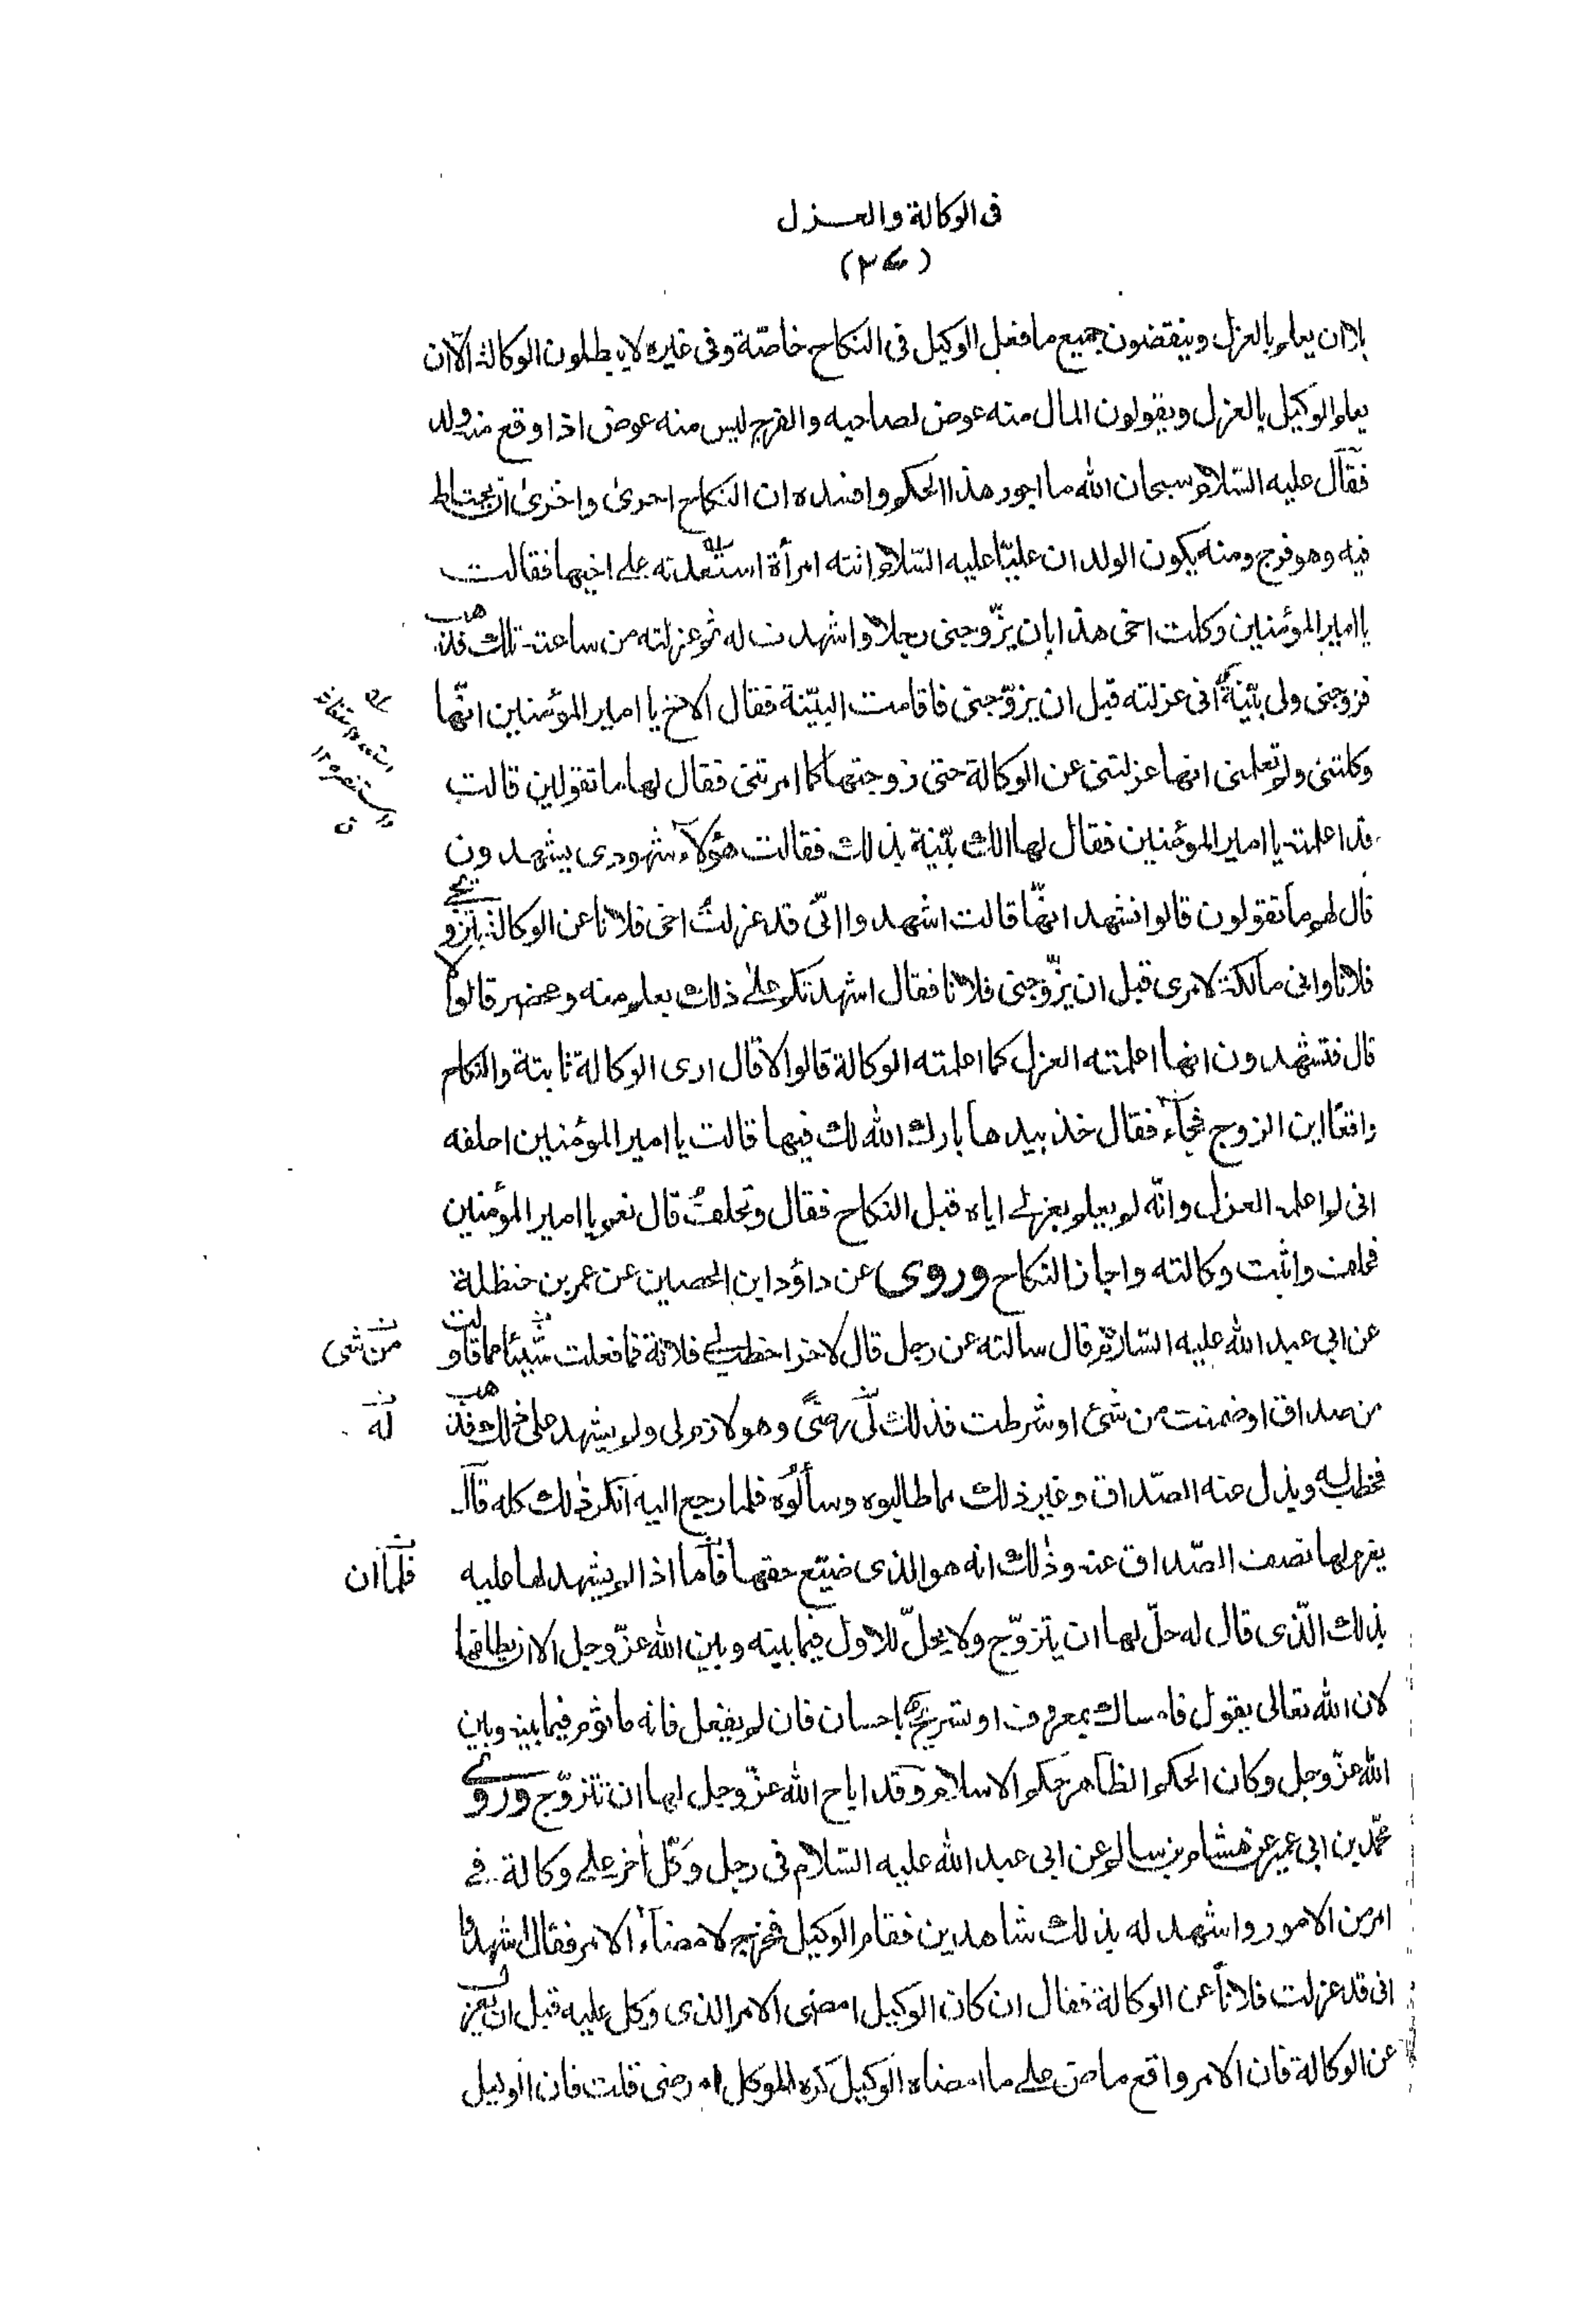 فى الوكالة والعزل
(٣٤)
بلا ان يعلم بالعزل وينقضون جميع ما فعل الوكيل فى النكاح خاصّة وفى غيره لا يبطلون الوكالة الّا ان
يعلم الوكيل بالعزل ويقولون المال منه عوض لصاحبه والفرج ليس منه عوض اذا وقع منه ولد
فقال عليه السّلام سبحان الله ما اجور هذا الحكم وافسده ان النكاح احرى واحرى ان يحتاط
فيه وهو فرج ومنه يكون الولد ان عليّا عليه السّلام اتته امرأة استعدته على اخيها فقالت
يا امير المؤمنين وكلت اخى هذا بان يزّوجنى رجلا واشهدت له ثم عزلته من ساعته تلك فذهب
فزوجنى ولى بيّنة انى عزلته قبل ان يزوّجنى فاقامت البيّنة فقال الاخ يا امير المؤمنين انّها
وكلتنى ولم تعلمنى انها عزلتنى عن الوكالة حتى زوجتها كما امرتنى فقال لها ما تقولين قالت
قد اعلمته يا امير المؤمنين فقال لها الك بيّنة بذلك فقالت هؤلاء شهودى يشهدون
قال لهم ما تقولون قالوا نشهد انّها قالت اشهدوا انّى قد عزلت اخى فلانا عن الوكالة بتزويجى
فلانا وانى مالكة لامرى قبل ان يزّوجنى فلانا فقال اشهدتكم على ذلك بعلم منه ومحضر قالوا لا
قال فتشهدون انها اعلمته العزل كما اعلمته الوكالة قالوا لا قال ارى الوكالة ثابتة والنكاح
واقعا اين الزوج فجاء فقال خذ بيدها بارك الله لك فيها قالت يا امير المؤمنين احلفه
انى لم اعلمه العزل وانّه لم يعلم بعزلى اياه قبل النكاح فقال وتحلف قال نعم يا امير المؤمنين
فحلف واثبت وكالته واجاز النكاح وروى عن داؤد ابن الحصين عن عمر بن حنظلة
عن ابى عبد الله عليه السّلام قال سالته عن رجل قال لاخر اخطب لى فلانة فما فعلت شيئا مما قاولت
من شى
من صداق او ضمنت من شئ او شرطت فذلك لى رضىً وهو لازم لى ولم يشهد على ذلك فذهب
له
فخطب له وبذل عنه الصّداق وغير ذلك مما طالبوه وسألوه فلما رجع اليه انكر ذلك كله قال
يغرم لها نصف الصّداق عنه وذلك انه هو الذى ضيّع حقها فاما اذا لم يشهد لها عليه
فلما ان
بذلك الّذى قال له حلّ لها ان يتزوّج ولا يحلّ للاول فيما بينه وبين الله عزّ وجل الا ان يطلقها
لان الله تعالى يقول فامساك بمعروف او تسريح باحسان فان لم يفعل فانه ماثوم فيما بينه وبين
الله عزّ وجل وكان الحكم الظاهر حكم الاسلام وقد اباح الله عزّ وجل لها ان تتزوّج وروى
محمّد بن ابى عمير عن هشام بن سالم عن ابى عبد الله عليه السّلام فى رجل وكّل اخر على وكالة فى
امر من الامور واشهد له بذلك شاهدين فقام الوكيل فخرج لامضاء الامر فقال اشهدوا
انى قد عزلت فلاناً عن الوكالة فقال ان كان الوكيل امضى الامر الذى وكل عليه قبل ان يعزل
عن الوكالة فان الامر واقع ماض على ما امضاه الوكيل كره الموكل ام رضى قلت فان الوكيل